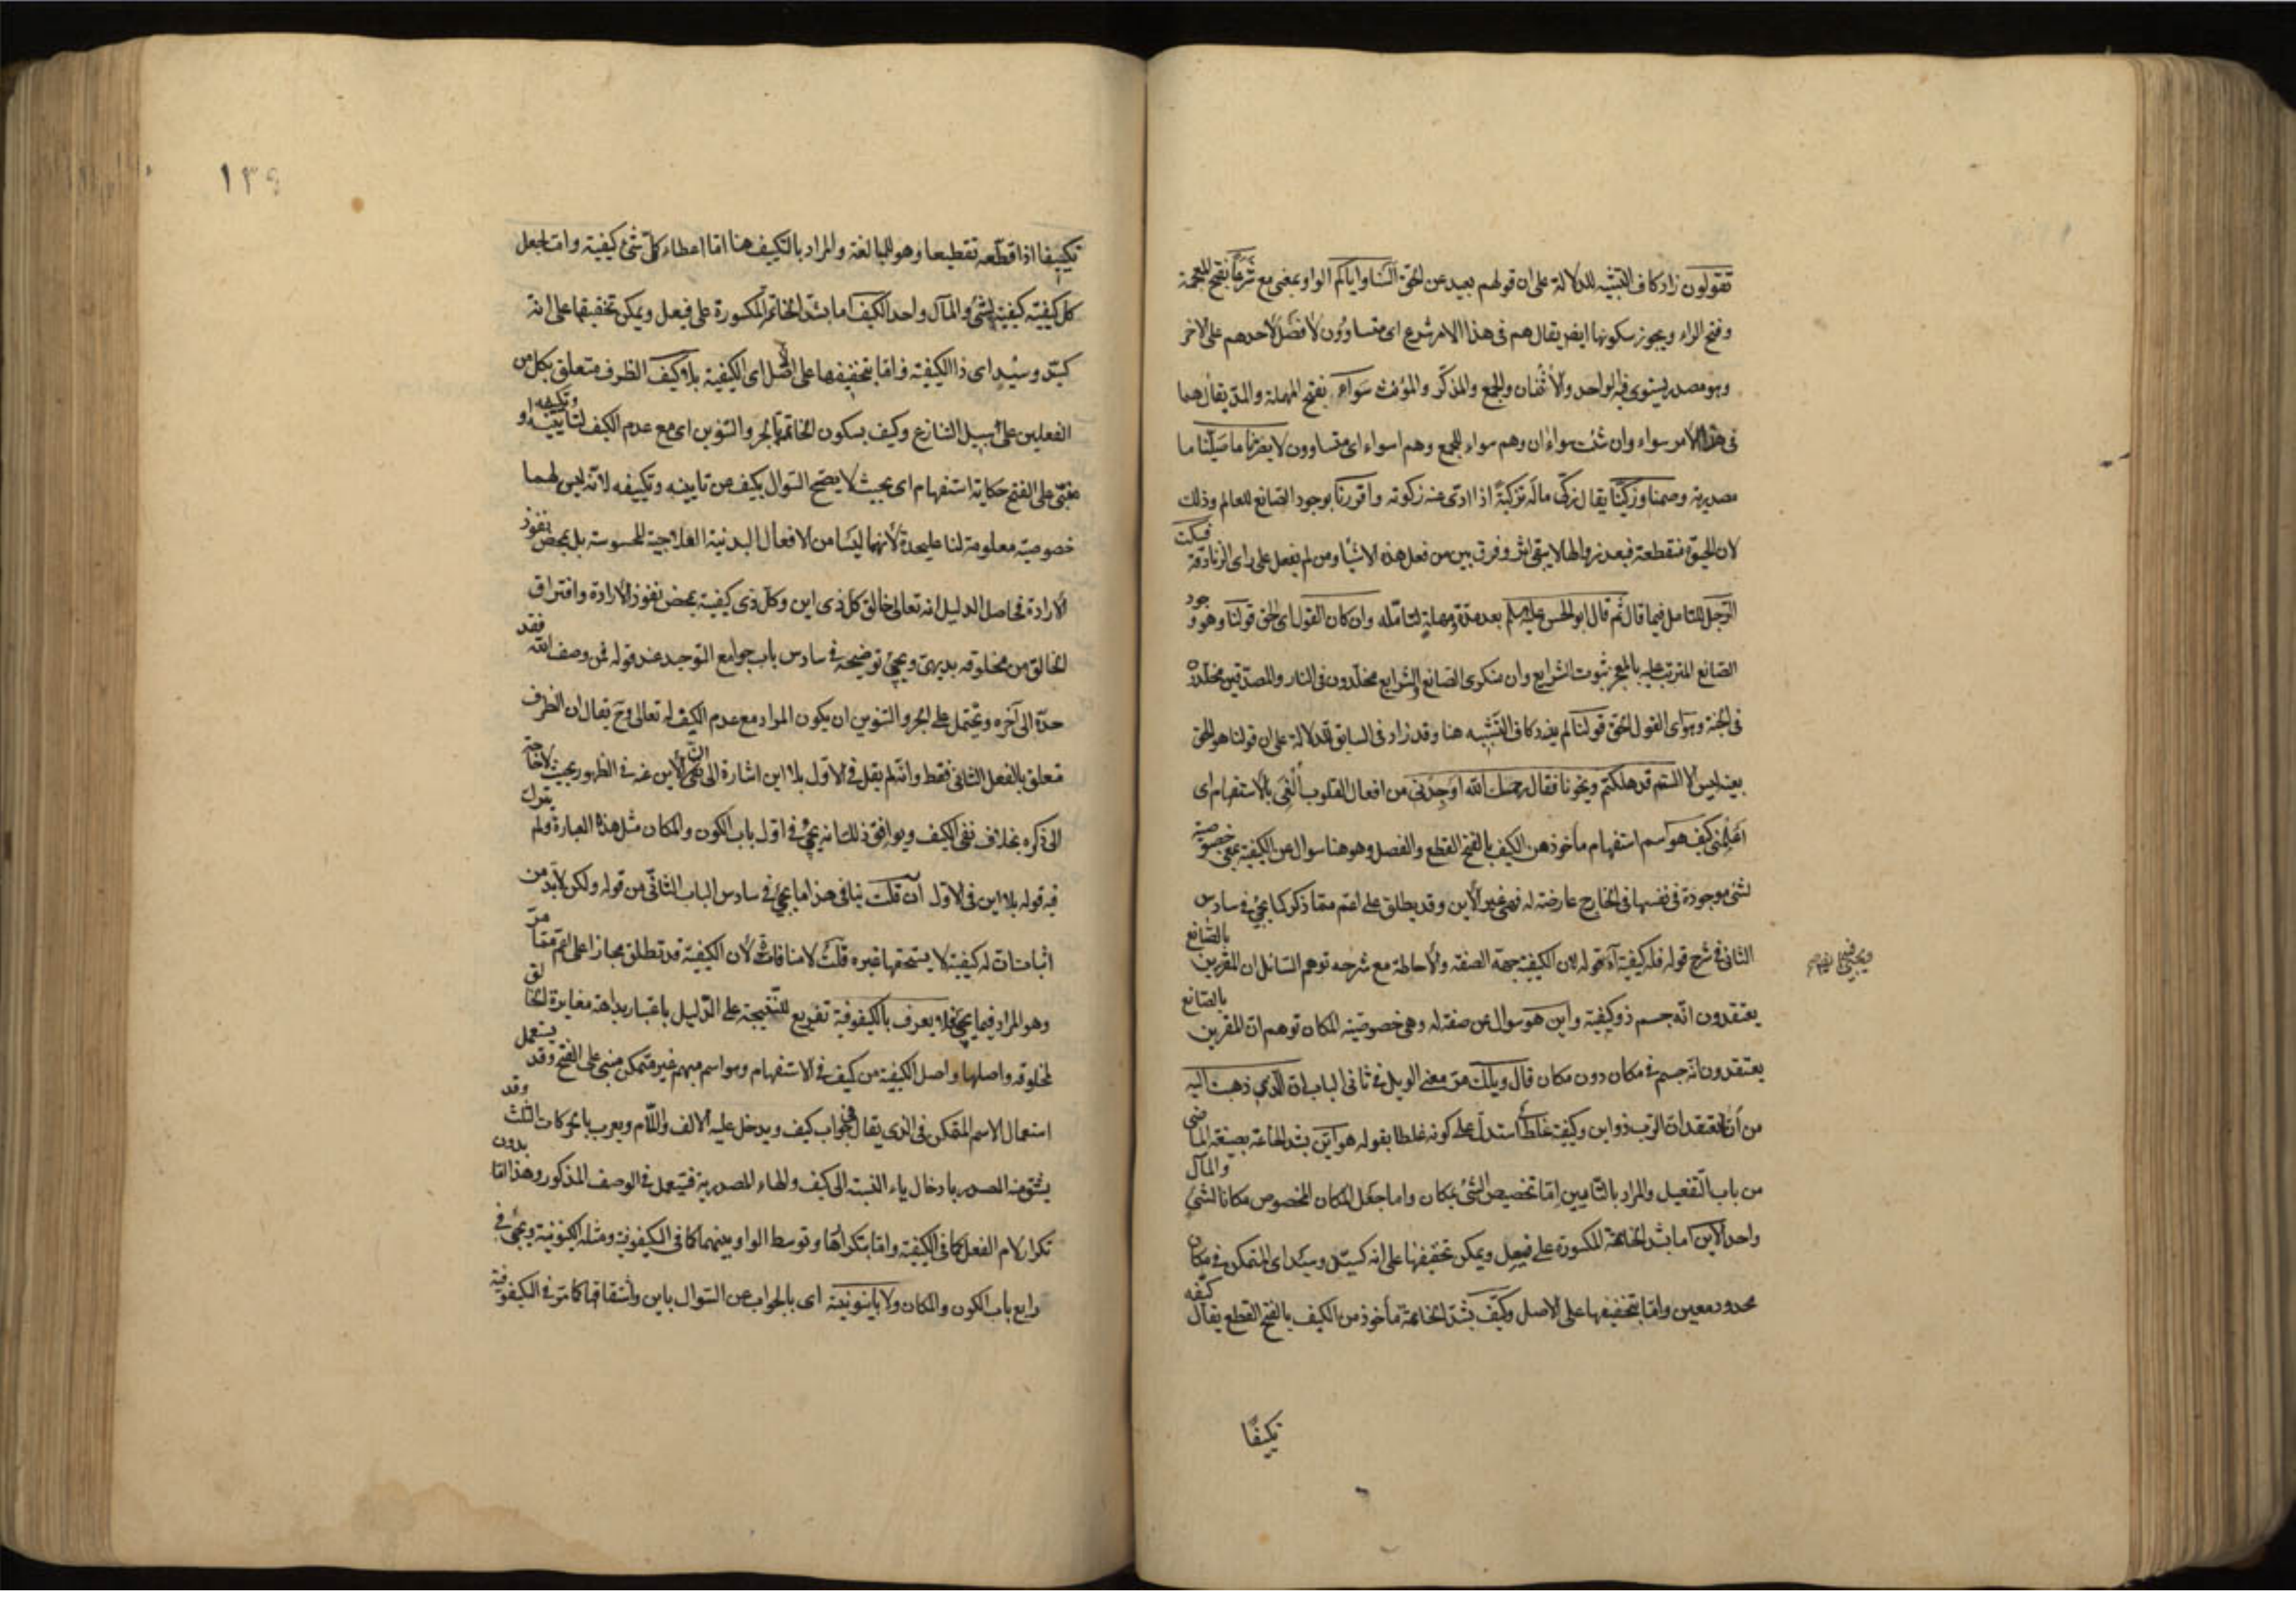 تقولون زاد كاف التشبيه للدلالة على ان قولهم بعيد عن الحق السنا واياكم الواو بمعنى مع شرعا بفتح المعجمة
وفتح الراء ويجوز سكونها ايضا يقال هم في هذا الامر شرع اى متساوون لا فضل لاحدهم على الاخر
وهو مصدر يستوى فيه الواحد والاثنان والجمع والمذكر والمؤنث سواء بفتح المهملة والمد يقال هما
في هذا الامر سواء وان شئت سواءان وهم سواء للجمع وهم اسواء اى متساوون لا يضرنا ما صلينا ما
مصدرية وصمنا وزكينا يقال زكى ماله تزكية اذا ادى عنه زكوته واقررنا بوجود الصانع للعالم وذلك
لان الحيوة منقطعة فبعد زوالها لا يبقى اثر وفرق بين من فعل هذه الاشيا ومن لم يفعل على راى الزنادقة فسكت
الرجل للتامل فيما قال ثم قال ابو الحسن عليه السلم بعد مدة ومهلة لتامله وان كان القول اى الحق قولنا وهو وجود
الصانع المترتب عليه بالمعجز ثبوت الشرايع وان منكرى الصانع والشرايع مخلدون في النار والمصدقين مخلدون
في الجنة وهو اى القول الحق قولنا لم يزد كاف التشبيه هنا وقد زاد في السابق للدلالة على ان قولنا هو الحق
بعينه ليس الا الستم قد هلكتم ونجونا فقال رحمك الله اوجدنى من افعال القلوب الغى بالاستفهام اى
اعلمنى كيف هو اسم استفهام مأخوذ من الكيف بالفتح القطع والفصل وهو هنا سوال عن الكيفية بمعنى خصوصية
لشئ موجودة في نفسها في الخارج عارضة له فهى غير الأين وقد يطلق على اعم مما ذكر كما يجئ في سادس
الثانى في شرح قوله فله كيفية آه قوله لان الكيفية جهة الصفة والاحاطة مع شرحه توهم السائل ان المقرين بالصانع
يعتقدون انه جسم ذو كيفية واين هو سوال عن صفة له وهى خصوصية المكان توهم ان المقرين بالصانع
يعتقدون انه جسم في مكان دون مكان قال ويلك مر معنى الويل في ثانى الباب ان الذى ذهبت اليه
من ان نعتقد ان الرب ذو اين وكيفية غلط استدل على كونه غلطا بقوله هو اين بشد الخاتمة بصيغة الماضى
من باب التفعيل والمراد بالتأيين اما تخصيص الشئ بمكان واما جعل المكان المخصوص مكانا لشئ والمآل
واحد الاين اما بشد الخاتمة المكسورة على فيعل ويمكن تخفيفها على انه كسيد وسيد اى المتمكن في مكان
محدود معين واما بتخفيفها على الاصل وكيف بشد الخاتمة مأخوذ من الكيف بالفتح القطع يقال كيفه
تكييفا
تكييفا اذا قطعه تقطيعا وهو للمبالغة والمراد بالتكييف هنا اما اعطاء كل شئ كيفية واما جعل
كل كيفية كيفية لشئ والمآل واحد الكيف اما بشد الخاتمة المكسورة على فيعل ويمكن تخفيفها على انه
كسيد وسيد اى ذا الكيفية واما بتخفيفها على الاصل اى الكيفية بلا كيف الظرف متعلق بكل من
الفعلين على سبيل التنازع وكيف بسكون الخاتمة بالجر والتنوين اى مع عدم الكيف لتأيينه وتكييفه او
مبنى على الفتح حكاية استفهام اى بحيث لا يصح السوال بكيف عن تأيينه وتكييفه لانه ليس لهما
خصوصية معلومة لنا عليحدة لانهما ليسا من الافعال البدنية العلاجية المحسوسة بل بمحض نفوذ
الارادة فحاصل الدليل انه تعالى خالق كل ذى اين وكل ذى كيفية بمحض نفوذ الارادة وافتراق
الخالق من مخلوقه بديهى ويجئ توضيحه في سادس باب جوامع التوحيد عند قوله فمن وصف الله فقد
حده الى آخره ويحتمل على الجر والتنوين ان يكون المراد مع عدم الكيف له تعالى وح يقال ان الظرف
متعلق بالفعل الثانى فقط وانه لم يقل في الاول بلا اين اشارة الى ان نفى الأين عنه في الظهور بحيث لا حاجة
الى ذكره بخلاف نفى الكيف ويوافق ذلك انه يجئ في اول باب الكون والمكان مثل هذه العبارة ولم يترك
فيه قوله بلا اين في الاول ان قلت ينافى هذا ما يجئ في سادس الباب الثانى من قوله ولكن لا بد من
اثبات ان له كيفية لا يستحقها غيره قلت لا منافاة لان الكيفية قد تطلق مجازا على اعم مما مر
وهو المراد فيما يجئ فلا يعرف بالكيفوفية تفريع للنتيجة على الدليل باعتبار بداهة مغايرة الخالق
لمخلوقه واصلها واصل الكيفية من كيف في الاستفهام وهو اسم مبهم غير متمكن مبنى على الفتح وقد يستعمل
استعمال الاسم المتمكن في الذى يقال في جواب كيف ويدخل عليه الالف واللام ويعرب بالحركات الثلث وقد
يشتق منه المصدر بادخال ياء النسبة الى كيف والهاء المصدرية فيستعمل في الوصف المذكور وهذا اما بدون
تكرار لام الفعل كما في الكيفية واما بتكرارها وتوسط الواو بينهما كما في الكيفوفية ومثله الكينونية ويجئ في
رابع باب الكون والمكان ولا باينونية اى بالجواب عن السوال باين واشتقاقها كما مر في الكيفوفية
١٣٩